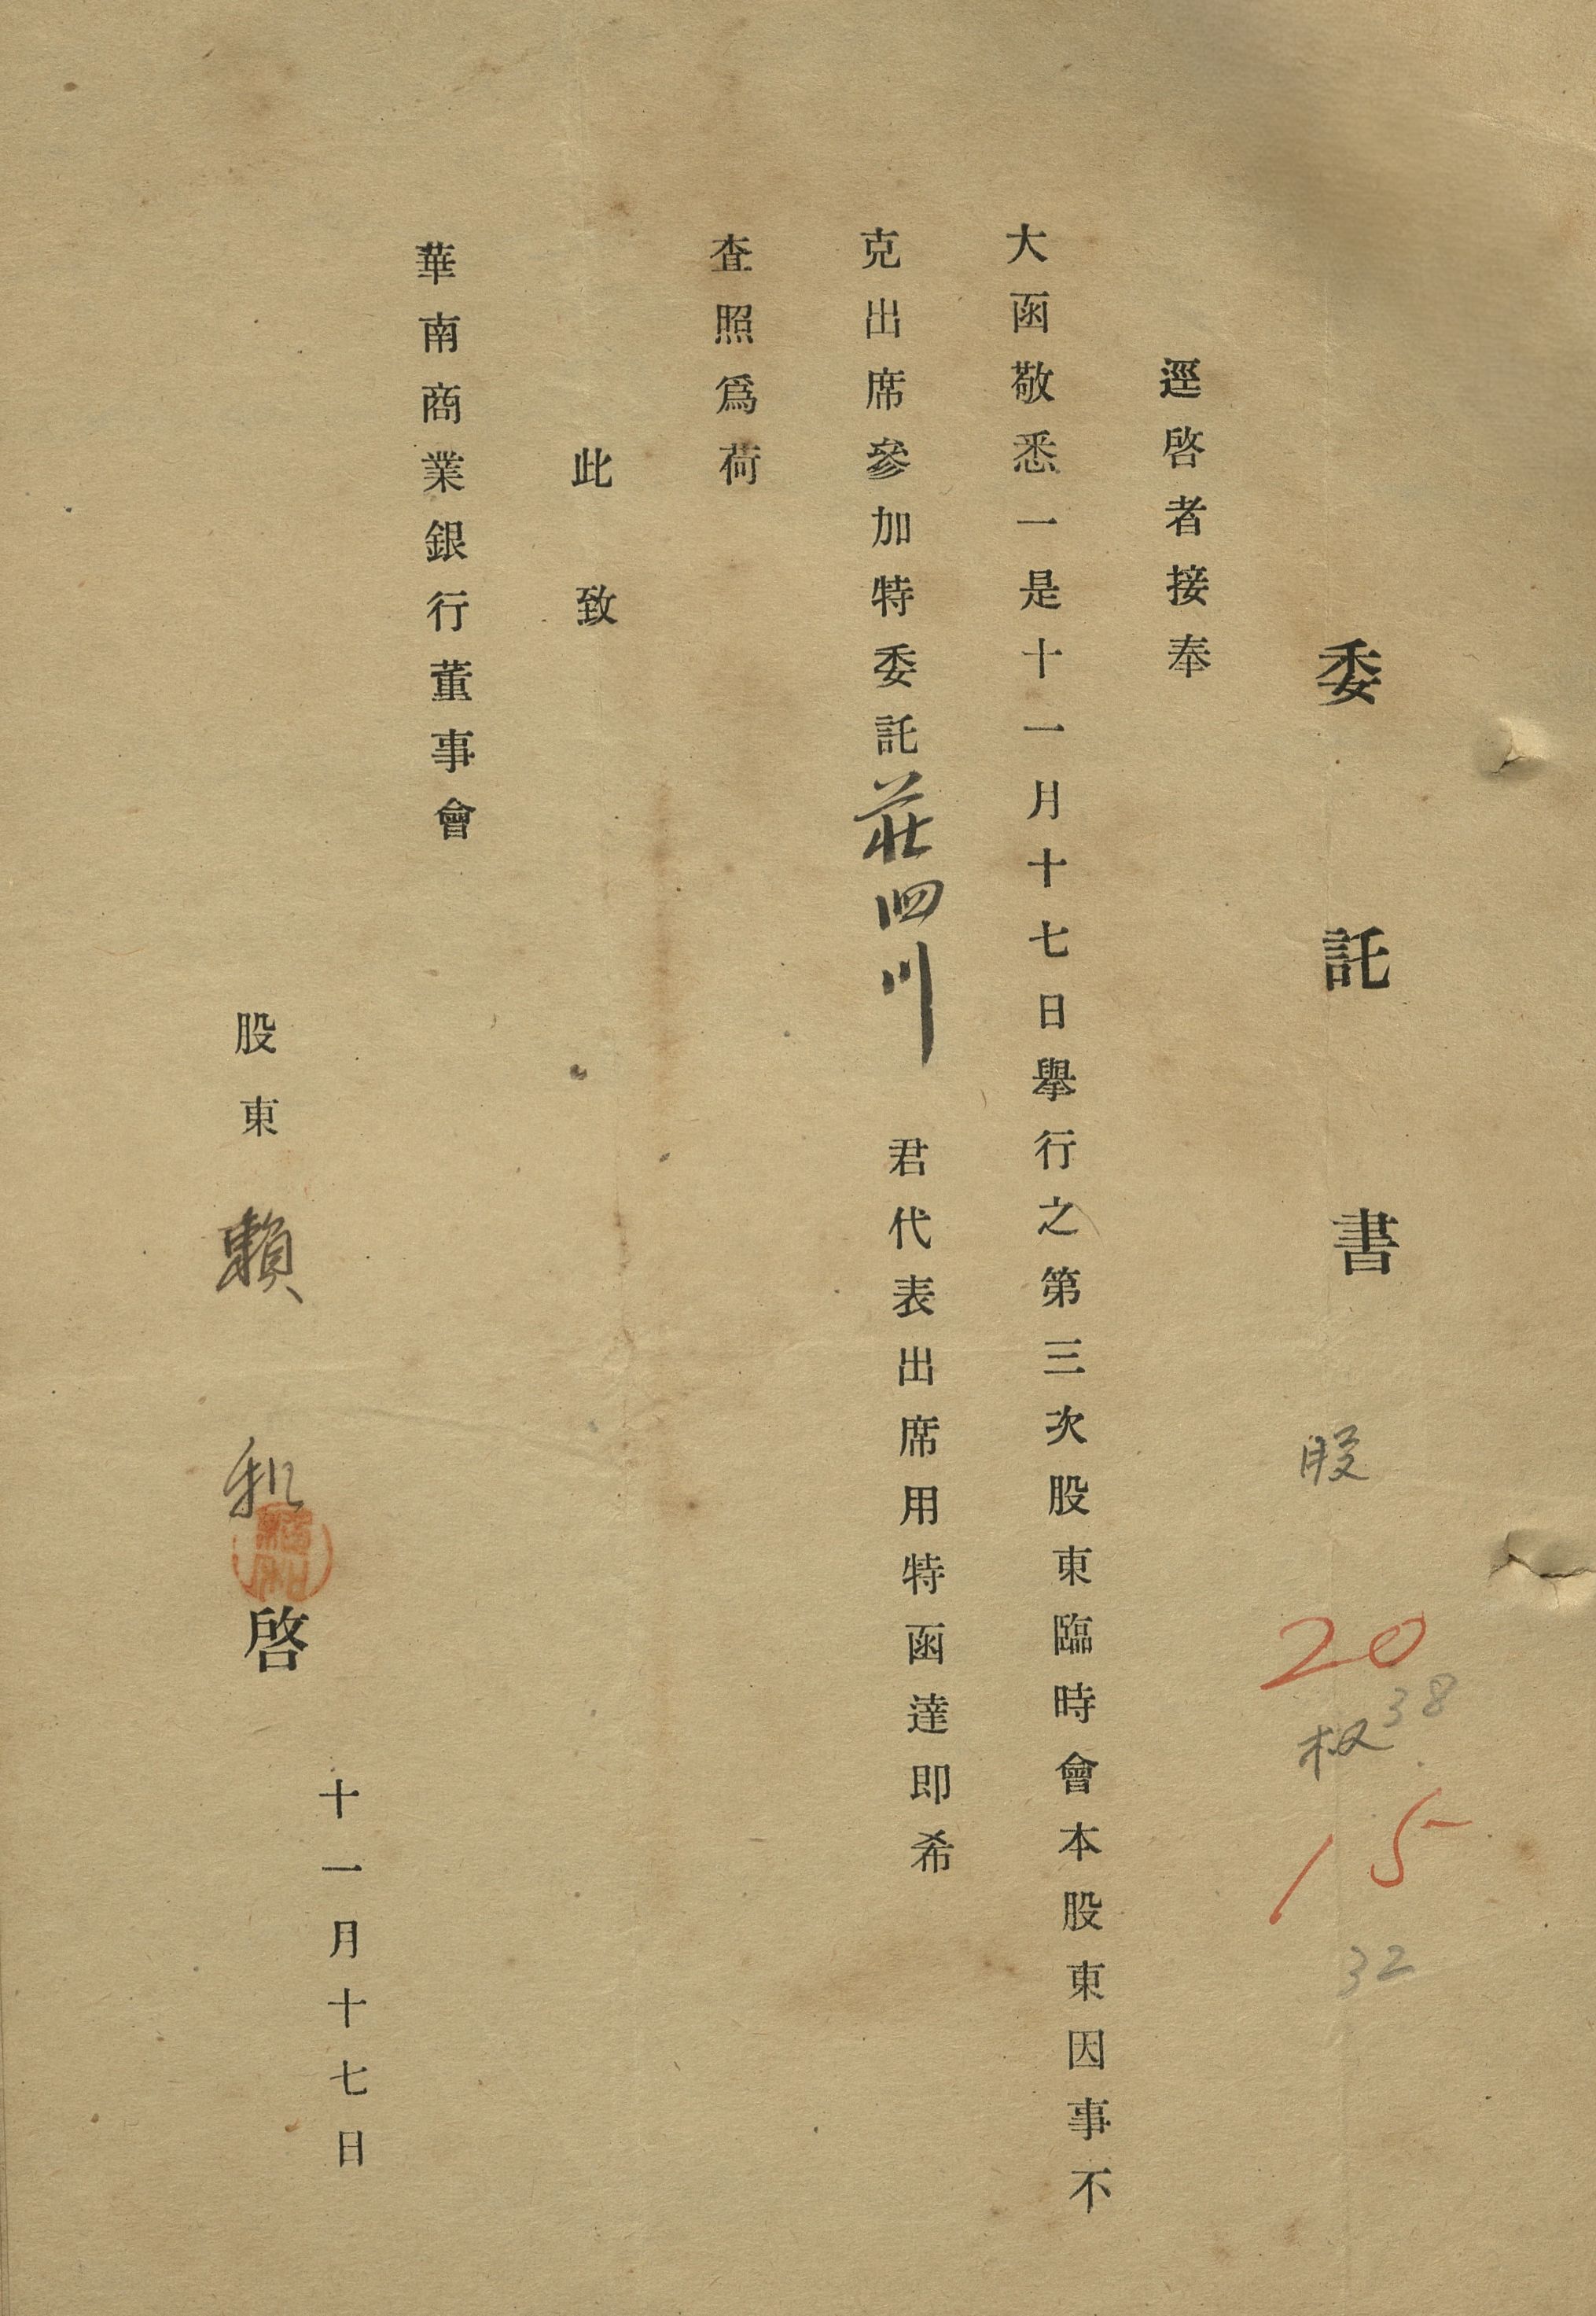 委託書
股 20
38
权 15
32
逕啓者接奉
大函敬悉一是十一月十七日舉行之第三次股東臨時會本股東因事不
克出席參加特委託莊泗川 君代表出席用特函達即希
査照爲荷
此致
華南商業銀行董事會
十一月十七日
股東 賴 和 啓